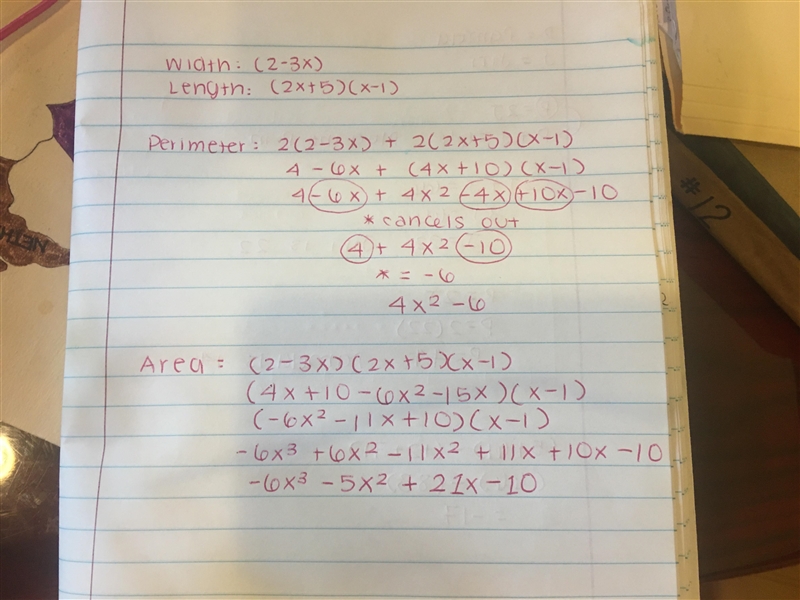 Width: (2-3x)
Length: (2x+5)(x-1)
Perimeter: 2(2-3x) + 2(2x+5)(x-1)
4 - 6x + (4x+10)(x-1)
4 -6x + 4x2 -4x +10x -10
*cancels out
4 + 4x2 -10
* = -6
4x2 -6
Area: (2-3x)(2x+5)(x-1)
(4x+10-6x²-15x)(x-1)
(-6x²-11x+10)(x-1)
-6x³ +6x² -11x² + 11x +10x -10
-6x³ -5x² + 21x -10
#12
NETH